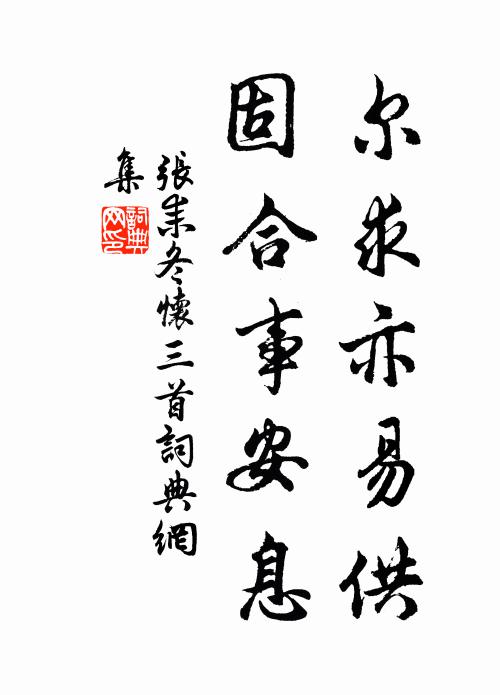 尔求亦易供
固合事安息
張耒冬懷三首詞典網
集
詞典
网印